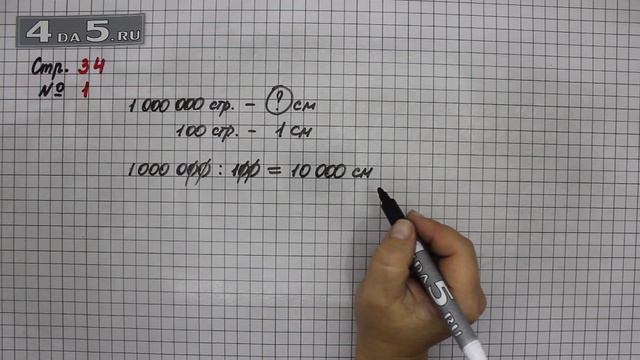 4DA5.RU
Стр. 34
№ 1
1 000 000 стр. – ? см
100 стр. – 1 см
1 000 000 : 100 = 10 000 см
4DA5.RU